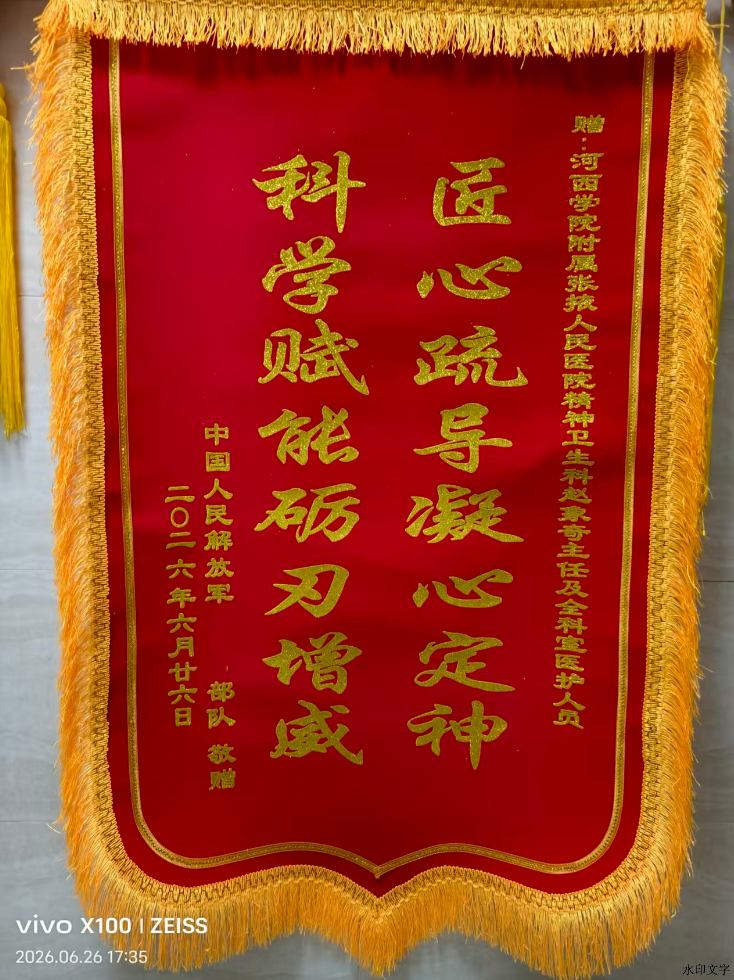 赠:河西学院附属张掖人民医院精神卫生科赵东奇主任及全科室医护人员
匠心疏导凝心定神
科学赋能砺刃增威
中国人民解放军 部队 敬赠
二〇二六年六月廿六日
vivo X100 | ZEISS
2026.06.26 17:35
水印文字